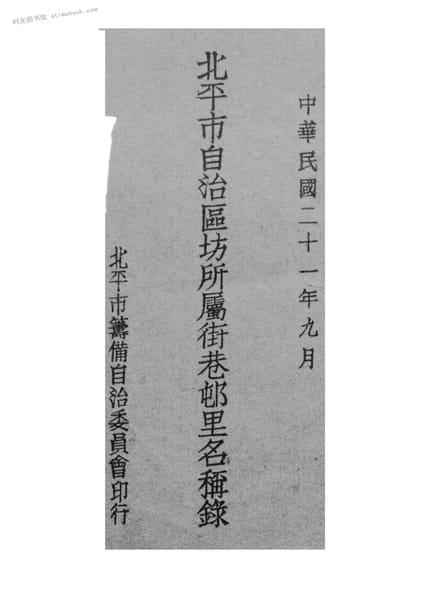 时光图书馆 stimebook.com
中華民國二十一年九月
北平市自治區坊所屬街巷邨里名稱錄
北平市籌備自治委員會印行